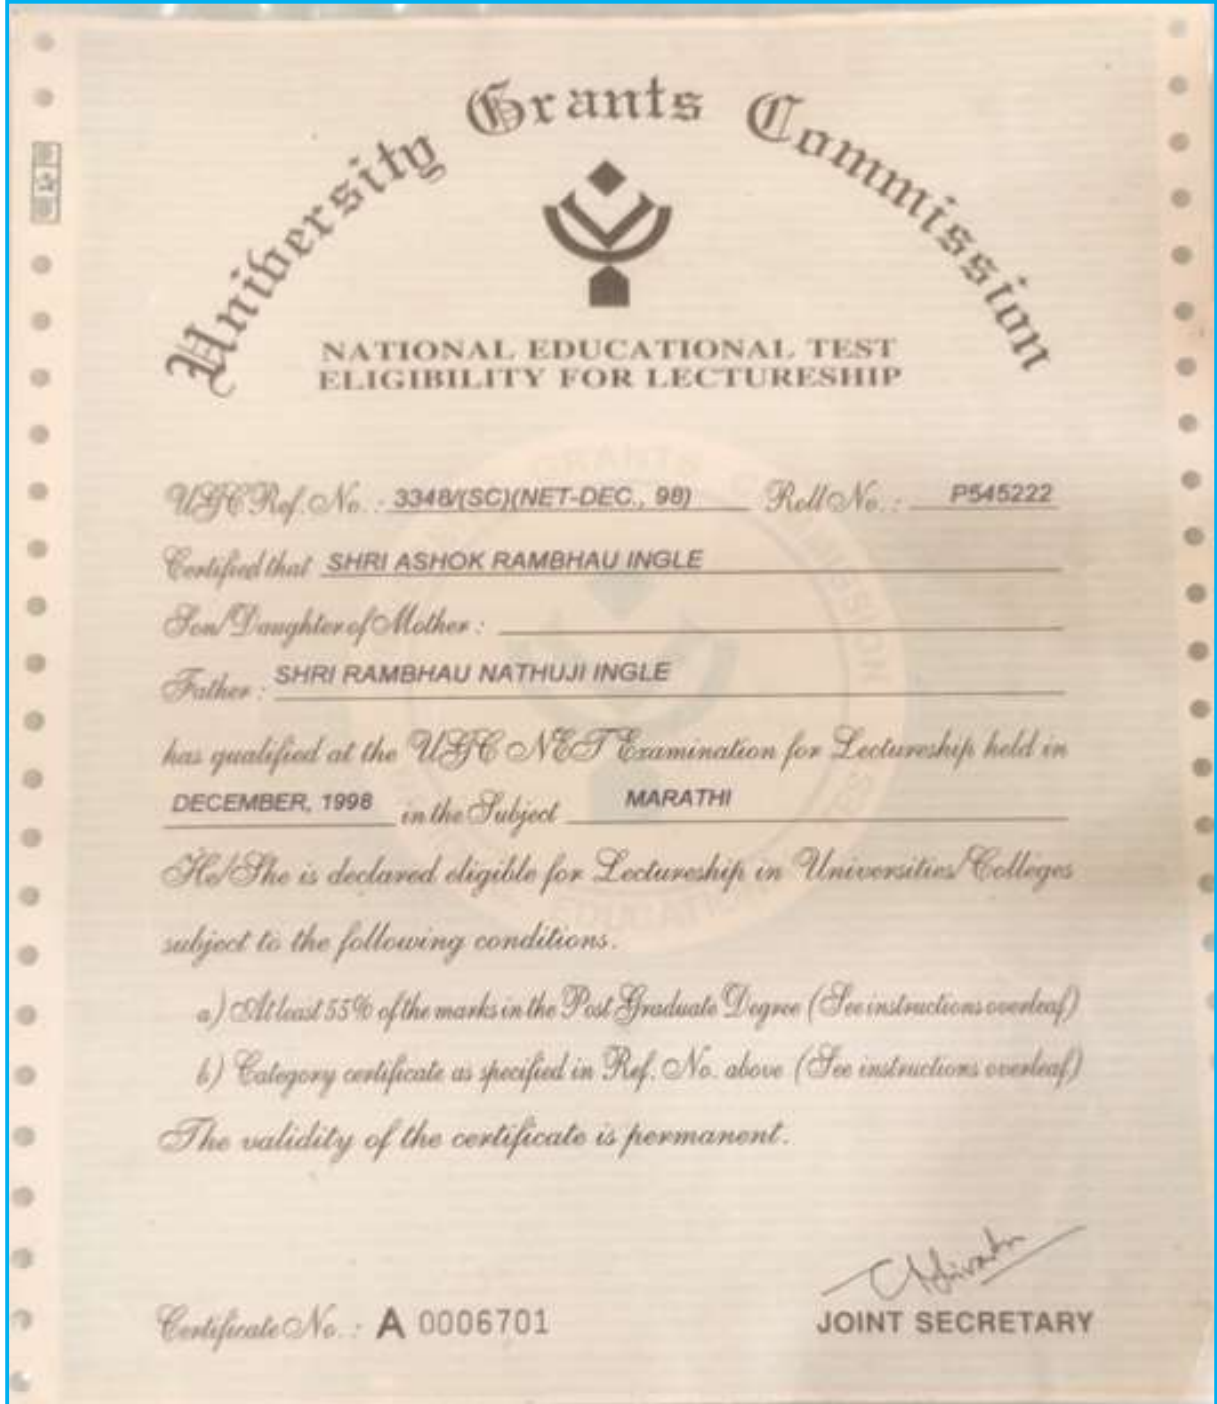 University Grants Commission
NATIONAL EDUCATIONAL TEST
ELIGIBILITY FOR LECTURESHIP
UGC Ref. No. : 3348/(SC)(NET-DEC., 98) Roll No. : P545222
Certified that SHRI ASHOK RAMBHAU INGLE
Son/Daughter of Mother :
Father : SHRI RAMBHAU NATHUJI INGLE
has qualified at the UGC NET Examination for Lectureship held in
DECEMBER, 1998 in the Subject MARATHI
He/She is declared eligible for Lectureship in Universities/Colleges
subject to the following conditions.
a) At least 55% of the marks in the Post Graduate Degree (See instructions overleaf)
b) Category certificate as specified in Ref. No. above (See instructions overleaf)
The validity of the certificate is permanent.
Certificate No. : A 0006701
JOINT SECRETARY